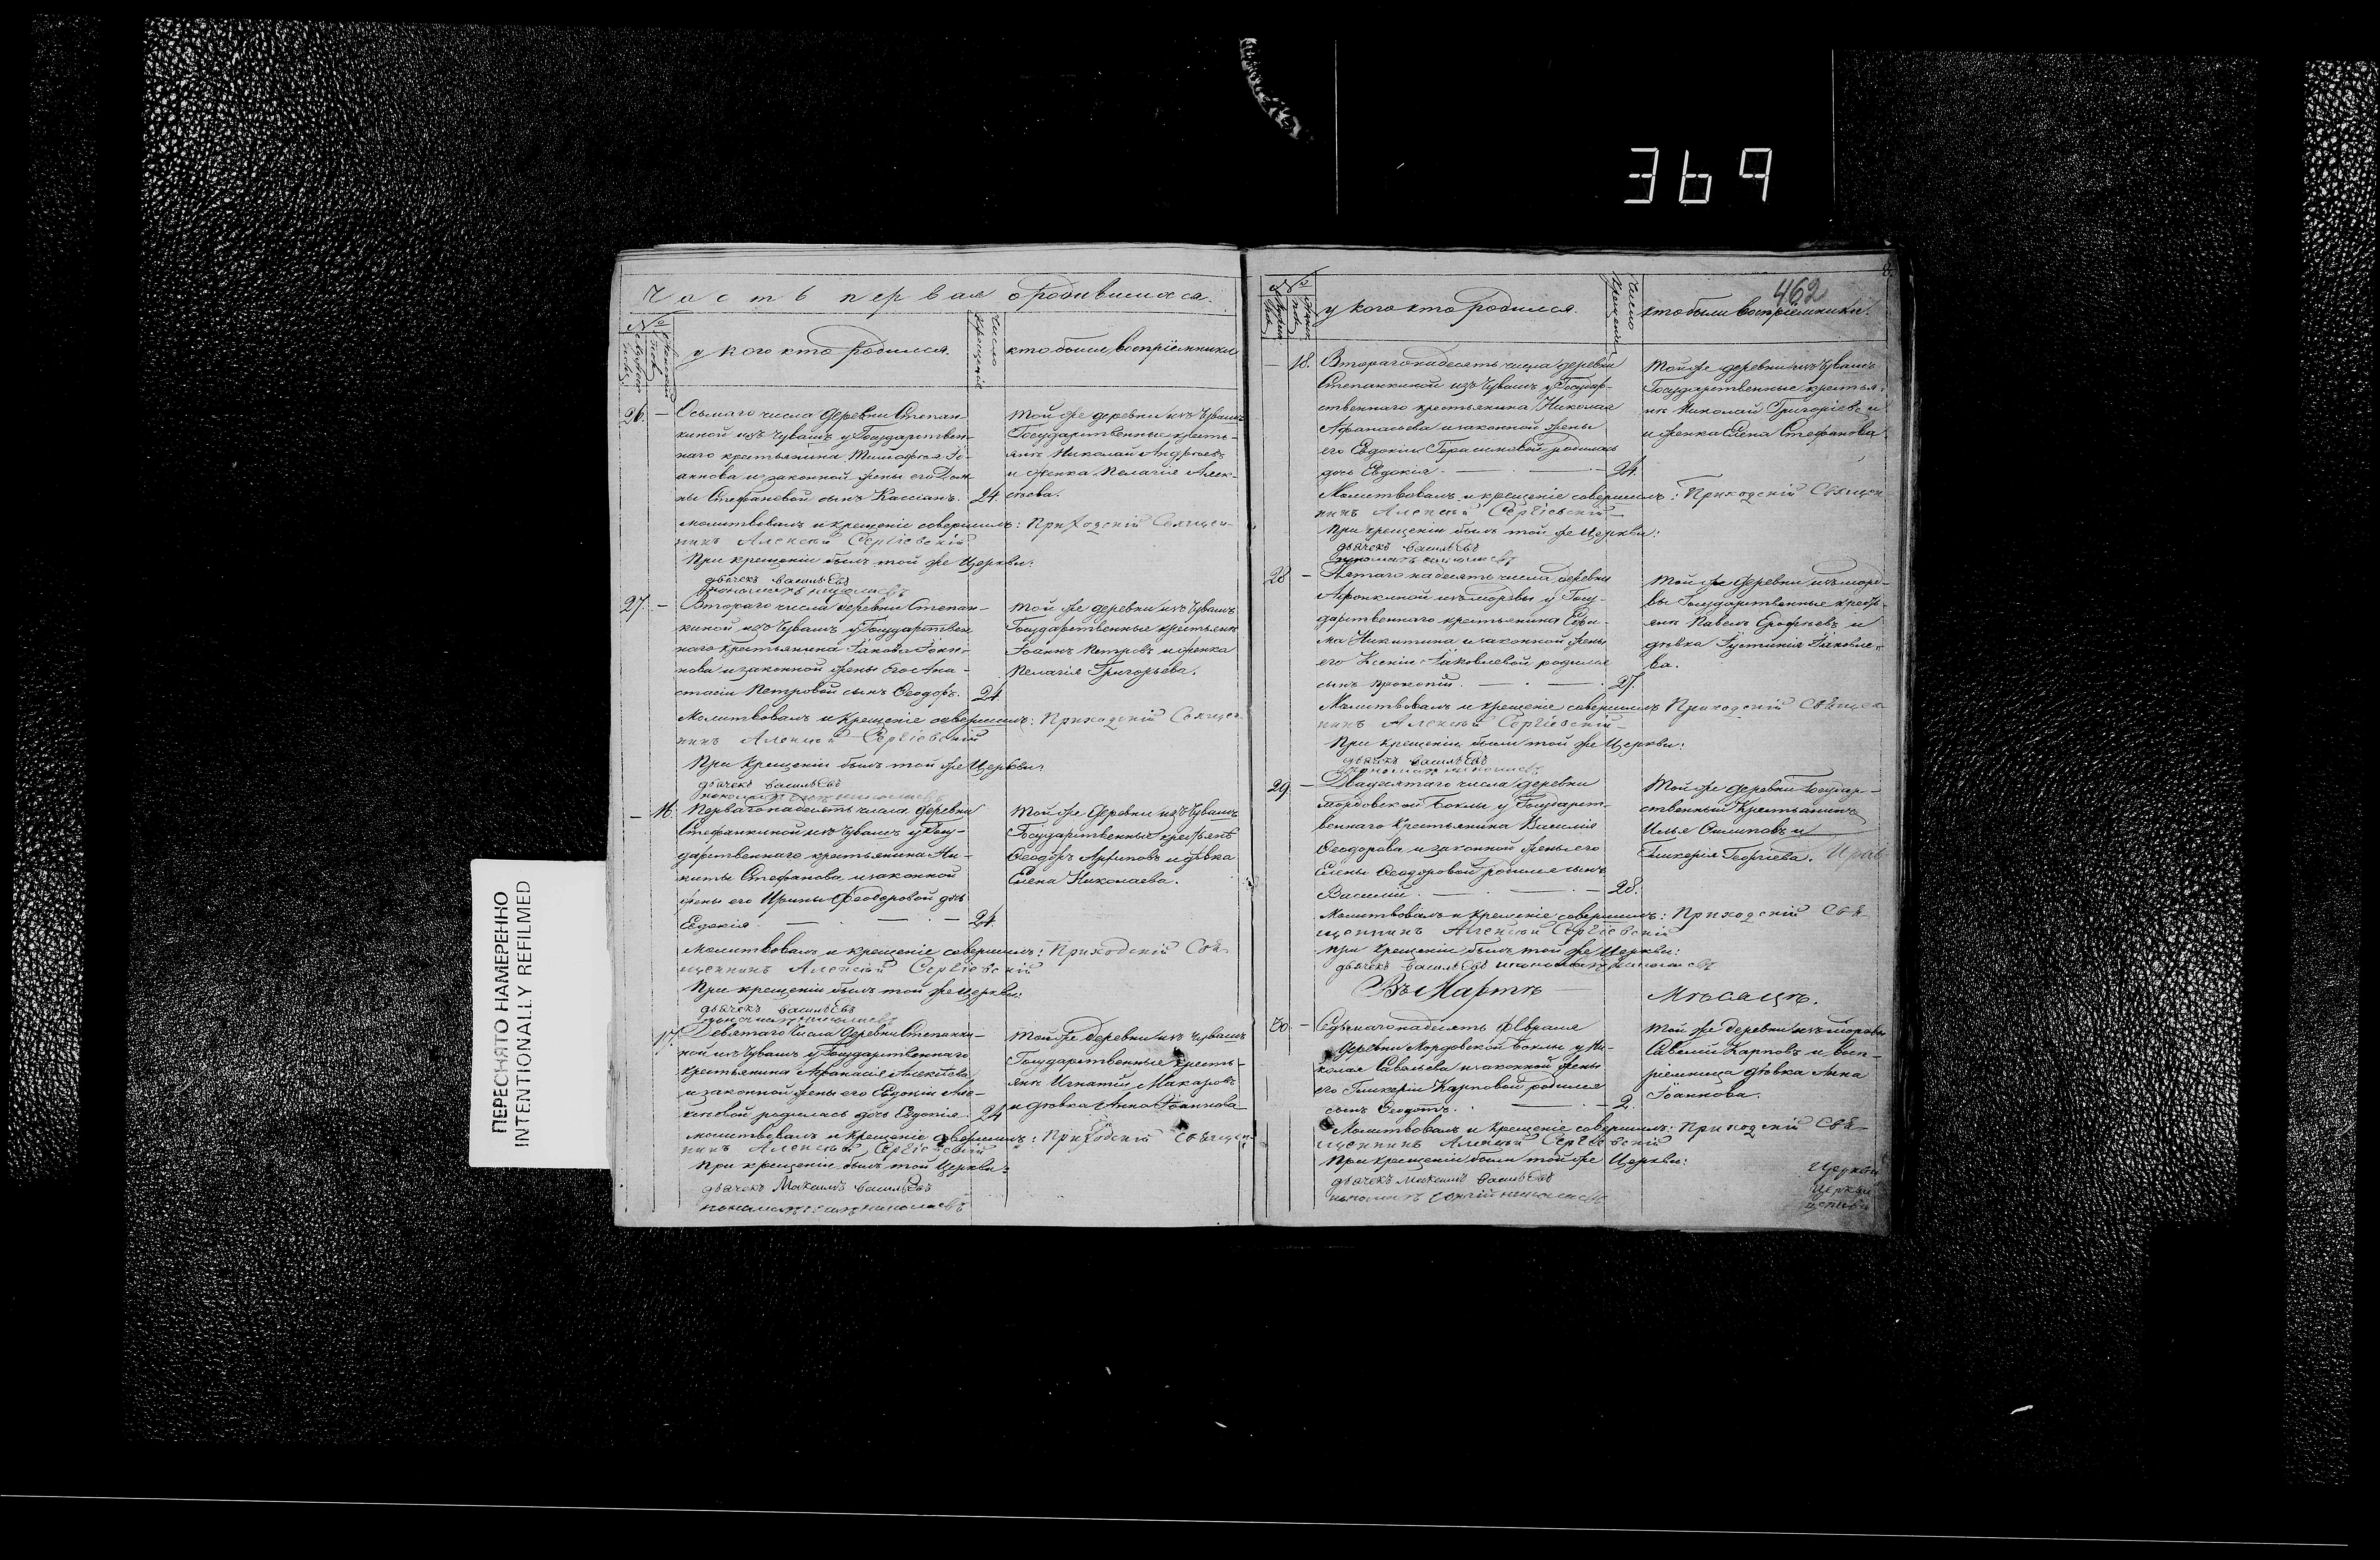 369
ПЕРЕСНЯТО НАМЕРЕННО
INTENTIONALLY REFILMED
Часть первая о родившихся.
№
у кого кто родился.
Число крещенія
кто были воспріемники
26. — Осьмаго числа деревни Степан-
киной изъ Чувашъ у Государствен-
наго крестьянина Тимофея Іо-
аннова и законной жены его Дом-
ны Стефановой сынъ Кассіанъ. 24.
Той же деревни изъ Чувашъ
Государственные кресть-
янъ Николай Андреевъ
и женка Пелагія Алек-
сѣева.
Молитвовалъ и крещеніе совершилъ: Приходскій Священ-
никъ Алексѣй Сергіевскій
При крещеніи былъ той же Церкви:
дьячекъ Васильевъ
пономарь Николаевъ
27. — Втораго числа деревни Степан-
киной изъ Чувашъ у Государствен
наго крестьянина Іакова Іоан-
нова и законной жены его Ана-
стасіи Петровой сынъ Ѳеодоръ. 24
Той же деревни изъ Чувашъ
Государственные крестьянъ
Іоаннъ Петровъ и женка
Пелагія Григорьева.
Молитвовалъ и крещеніе совершилъ: Приходскій Священ
никъ Алексѣй Сергіевскій
При крещеніи былъ той же Церкви:
дьячекъ Васильевъ
— 16. Перваго надесять числа деревни
Стефанкиной изъ Чувашъ у Госу-
дарственнаго крестьянина Ни-
киты Стефанова и законной
жены его Ирины Ѳеодоровой дочь
Евдокія — 24.
Той же деревни изъ Чувашъ
Государственные крестьянъ
Ѳеодоръ Архиповъ и дѣвка
Елена Николаева.
Молитвовалъ и крещеніе совершилъ: Приходскій Свя-
щенникъ Алексѣй Сергіевскій
При крещеніи былъ той же Церкви:
дьячекъ Васильевъ
пономарь Николаевъ
17. Девятаго числа деревни Степанки-
ной изъ Чувашъ у Государственнаго
крестьянина Аѳанасія Алексѣева
и законной жены его Евдокіи Але-
ксѣевой родилась дочь Евдокія. 24
Той же деревни изъ Чувашъ
Государственные кресть-
янъ Игнатій Макаровъ
и дѣвка Анна Іоаннова
Молитвовалъ и крещеніе совершилъ: Приходскій Священ-
никъ Алексѣй Сергіевскій
При крещеніи былъ той Церкви:
дьячекъ Максимъ Васильевъ
пономарь Николаевъ
462
8.
№
у кого кто родился.
Число крещенія
кто были воспріемники.
— 18. Втораго надесять числа деревни
Степанкиной изъ Чувашъ у Государ-
ственнаго крестьянина Николая
Аѳанасьева и законной жены
его Евдокіи Герасимовой родилась
дочь Евдокія. — 24.
Той же деревни изъ Чувашъ
Государственные крестья-
нъ Николай Григорьевъ и
и женка Елена Стефанова.
Молитвовалъ и крещеніе совершилъ: Приходскій Священ
никъ Алексѣй Сергіевскій
При крещеніи былъ той же Церкви:
дьячекъ Васильевъ
пономарь Николаевъ
28 — Пятаго надесять числа деревни
Афонкиной изъ мордвы у Госу-
дарственнаго крестьянина
Никитина и законной жены
его Ксеніи Іаковлевой родился
сынъ Прокопій. — 27.
Той же деревни изъ морд-
вы Государственные кресть-
янъ Павелъ Ерофѣевъ и
дѣвка Іустинія Іаковле-
ва.
Молитвовалъ и крещеніе совершилъ Приходскій Священ
никъ Алексѣй Сергіевскій
При крещеніи были той же Церкви:
дьячекъ Васильевъ
пономарь Николаевъ
29 — Двадесятаго числа деревни
Мордовской Боклы у Государст-
веннаго крестьянина Василія
Ѳеодорова и законной жены его
Елены Ѳеодоровой родился сынъ
Василій. — 28.
Той же деревни Государ-
ственный крестьянинъ
Илья Филиповъ и
Гликерія Георгіева.
Молитвовалъ и крещеніе совершилъ: Приходскій Свя-
щенникъ Алексѣй Сергіевскій
При крещеніи былъ той же Церкви:
дьячекъ Васильевъ пономарь Николаевъ
Въ Мартѣ Мѣсяцѣ.
30. — Седьмаго надесять Февраля
деревни Мордовской Боклы у Ни-
колая Савельева и законной жены
его Гликеріи Карповой родился
сынъ Ѳеодотъ. — 2.
Той же деревни изъ мордвы
Савелій Карповъ и восп-
ріемница дѣвка Анна
Іоаннова.
Молитвовалъ и крещеніе совершилъ: Приходскій Свя-
щенникъ Алексѣй Сергіевскій
При крещеніи были той же Церкви:
дьячекъ Максимъ Васильевъ
пономарь Сергій Николаевъ
Церкви
Церкви